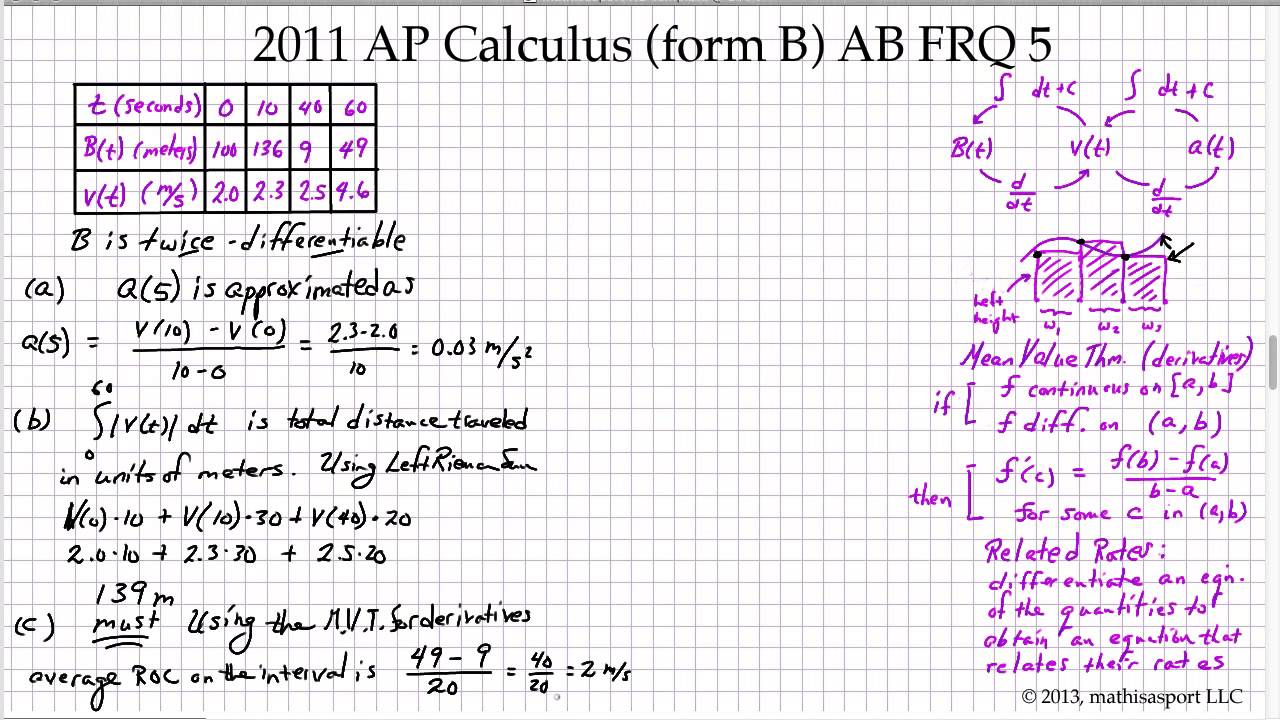 2011 AP Calculus (form B) AB FRQ 5
t (seconds) 0 10 40 60
B(t) (meters) 100 136 9 49
v(t) (m/s) 2.0 2.3 2.5 4.6
B is twice-differentiable
(a) a(5) is approximated as
a(5) = V(10) - V(0) / 10-0 = 2.3-2.0 / 10 = 0.03 m/s²
(b) ∫₀⁶⁰ |V(t)| dt is total distance traveled
in units of meters. Using Left Rieman Sum
V(0)·10 + V(10)·30 + V(40)·20
2.0·10 + 2.3·30 + 2.5·20
139 m
(c) must Using the M.V.T. for derivatives
average ROC on the interval is 49-9 / 20 = 40 / 20 = 2 m/s
∫ dt+C ∫ dt+C
B(t) v(t) a(t)
d/dt d/dt
Left
height
w₁ w₂ w₃
Mean Value Thm. (derivatives)
if [ f continuous on [a,b]
f diff. on (a,b)
then [ f'(c) = f(b)-f(a) / b-a
for some c in (a,b)
Related Rates:
differentiate an eqn.
of the quantities to
obtain an equation that
relates their rates
© 2013, mathisasport LLC